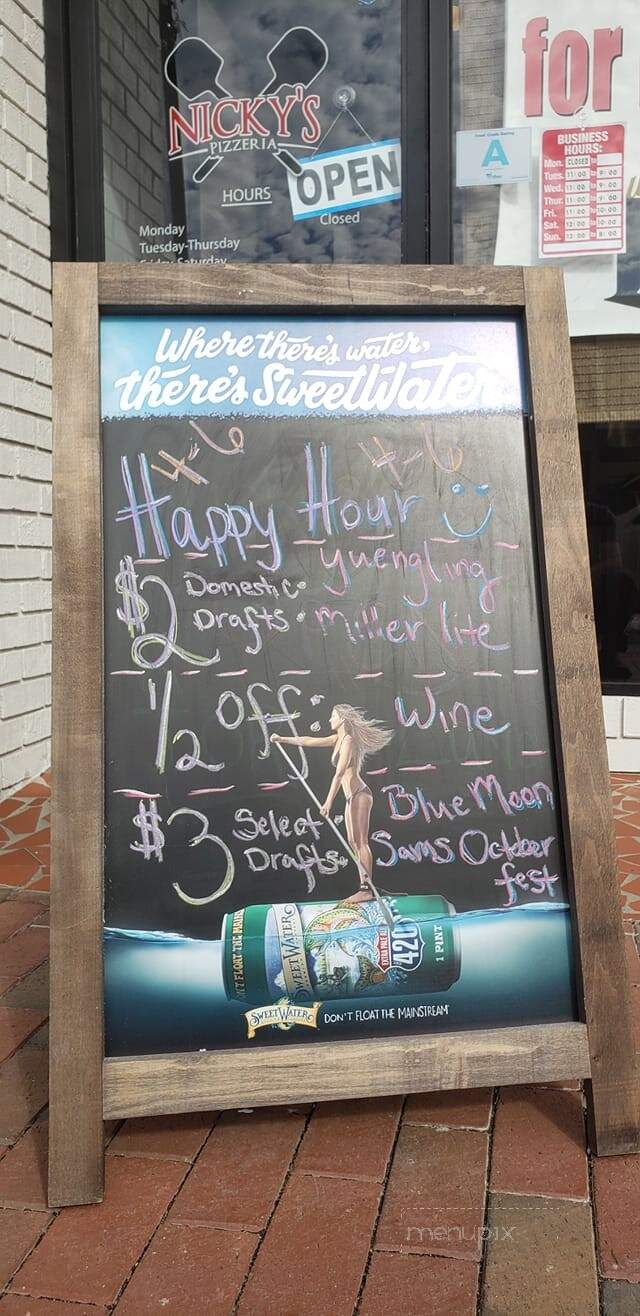 NICKY'S
PIZZERIA
HOURS
OPEN
Closed
Monday
Tuesday-Thursday
Friday Saturday
for
A
BUSINESS
HOURS:
Mon. CLOSED
Tues. 11:00 to 9:00
Wed. 11:00 to 9:00
Thur. 11:00 to 9:00
Fri. 11:00 to 10:00
Sat. 12:00 to 10:00
Sun. 12:00 to 8:00
Where there's water,
there's SweetWater
4-6 4-6
Happy Hour
$2 Domestic Drafts
Yuengling
Miller lite
1/2 Off: Wine
$3 Select Drafts
Blue Moon
Sams October
fest
SWEETWATER
EXTRA PALE ALE
420
1 PINT
SWEETWATER
DON'T FLOAT THE MAINSTREAM
menupix